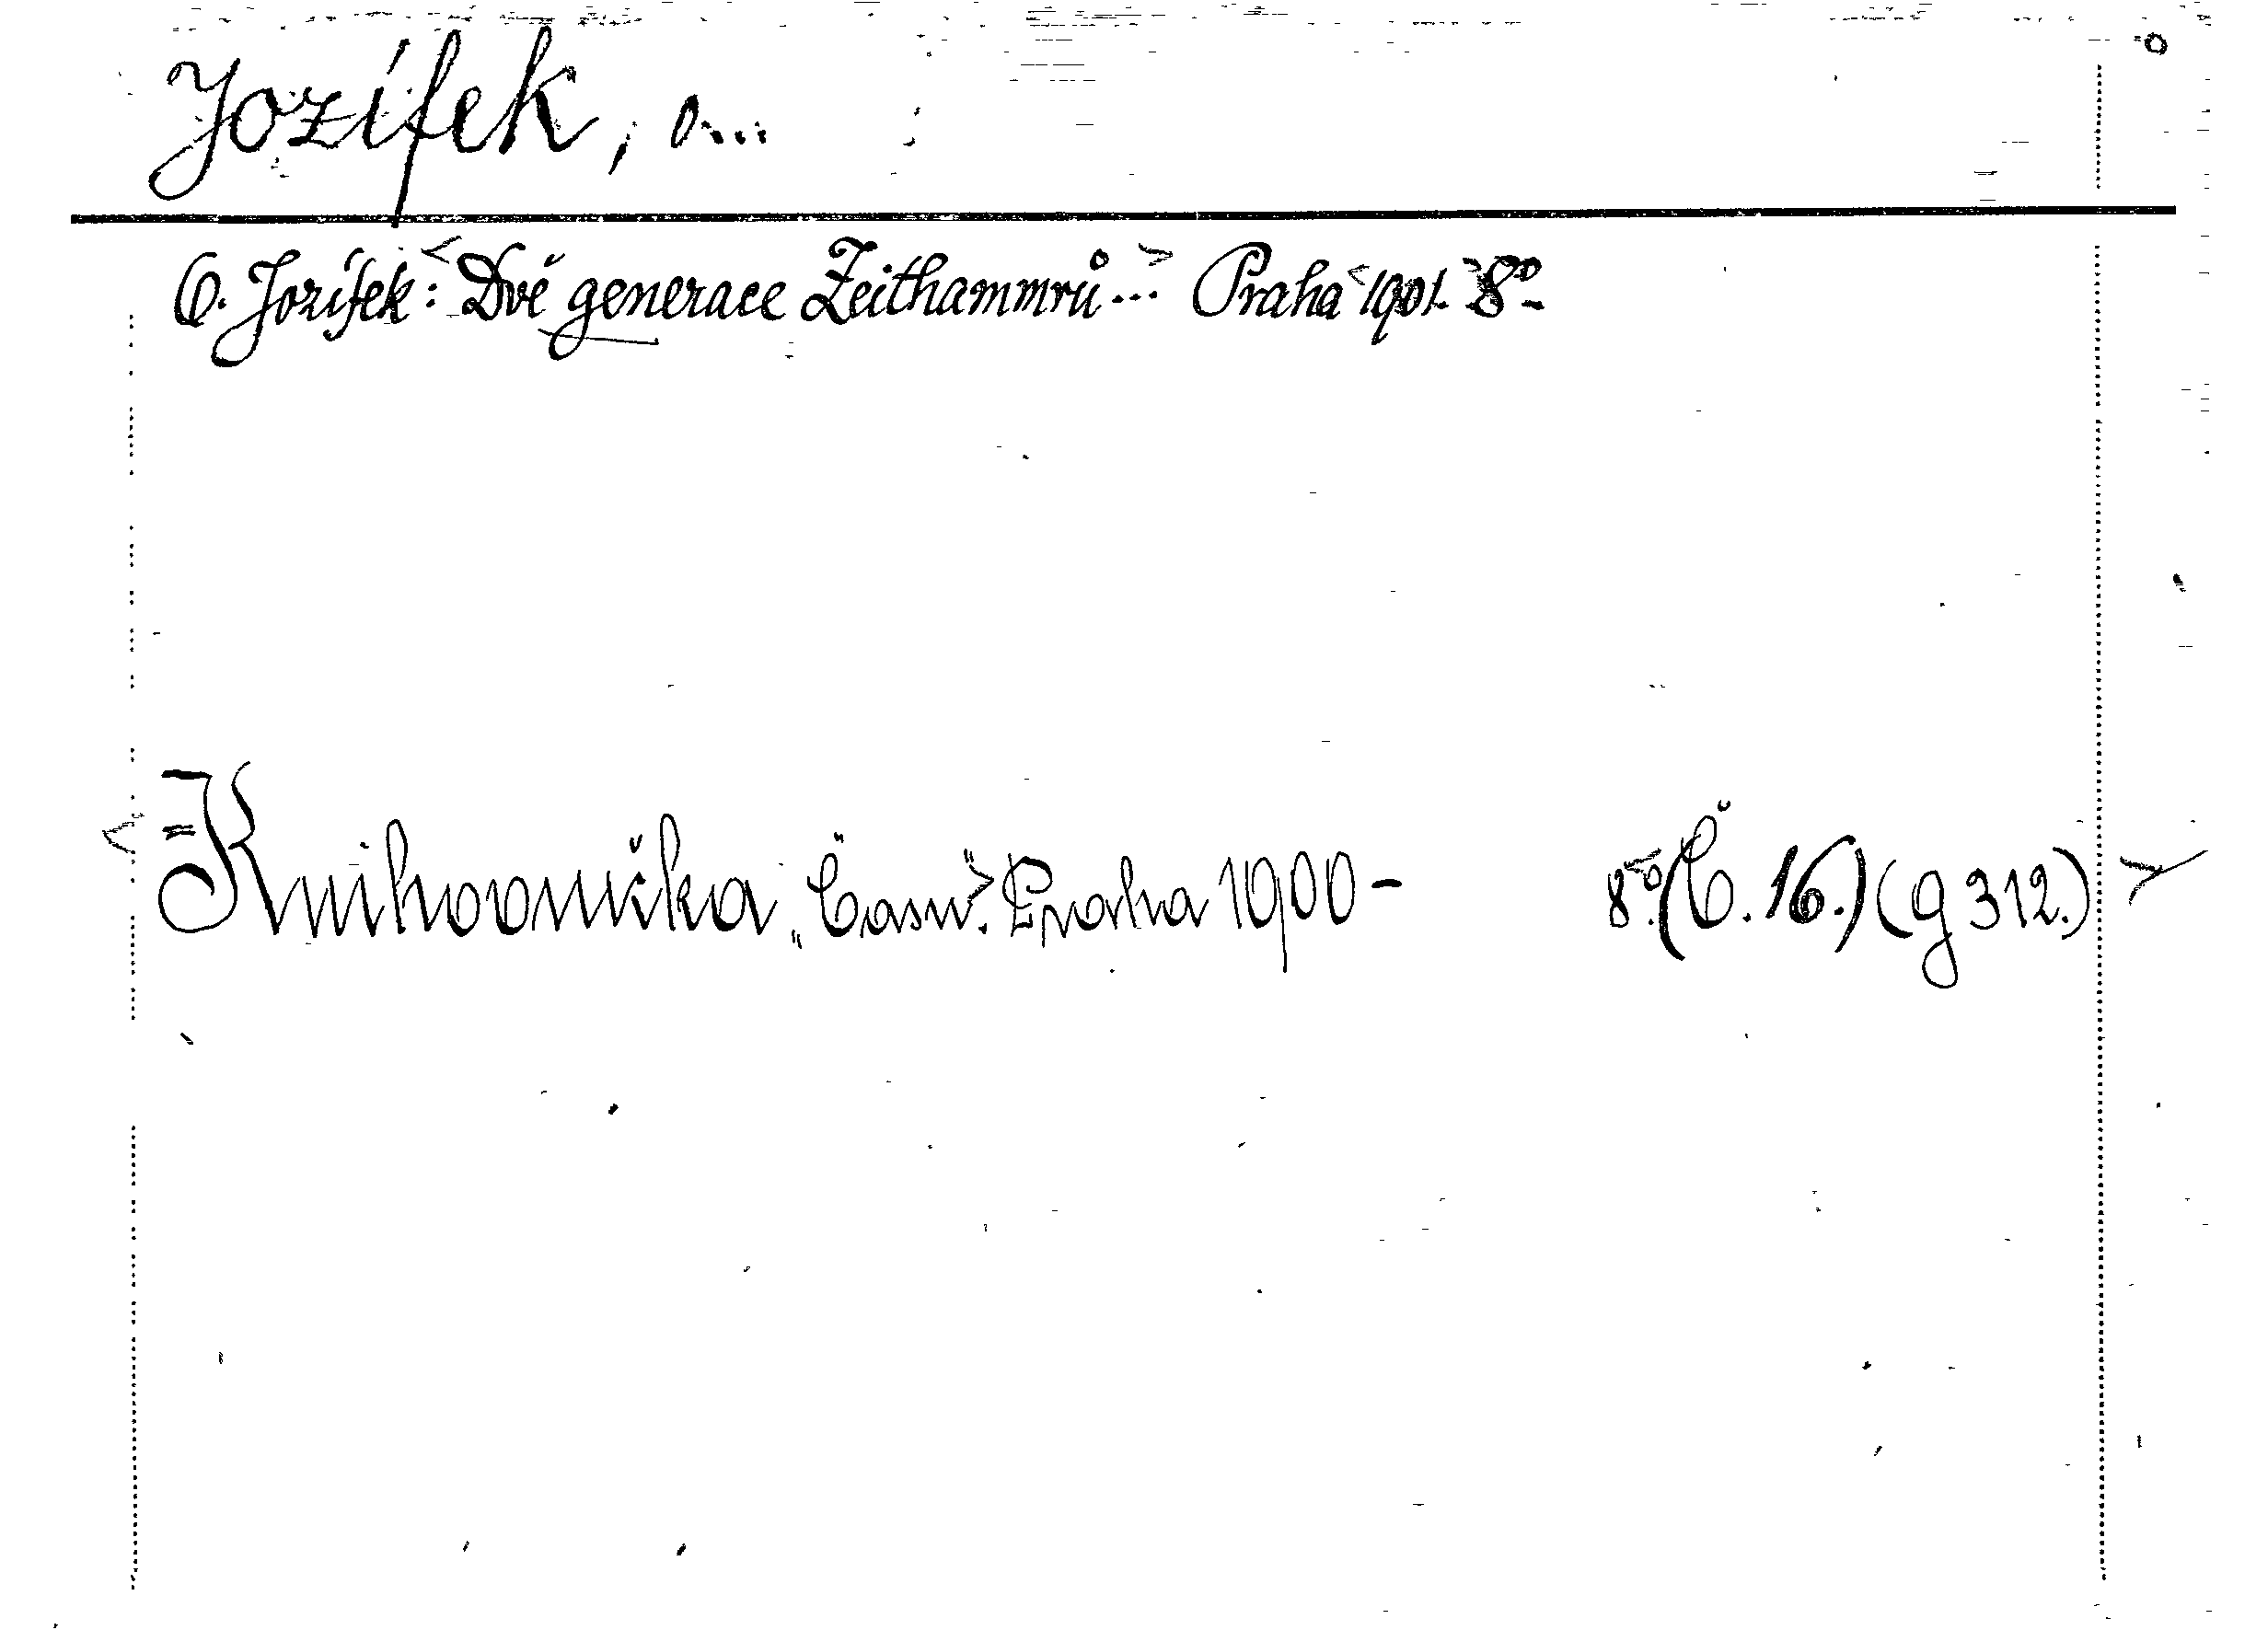 Jozífek, O...
O. Jozífek: <Dvě generace Zeithammrů...> Praha <1901.> 8º.
<= Knihovnička „Času“.> Praha 1900- 8º. <(Č. 16.) (g 312.)>